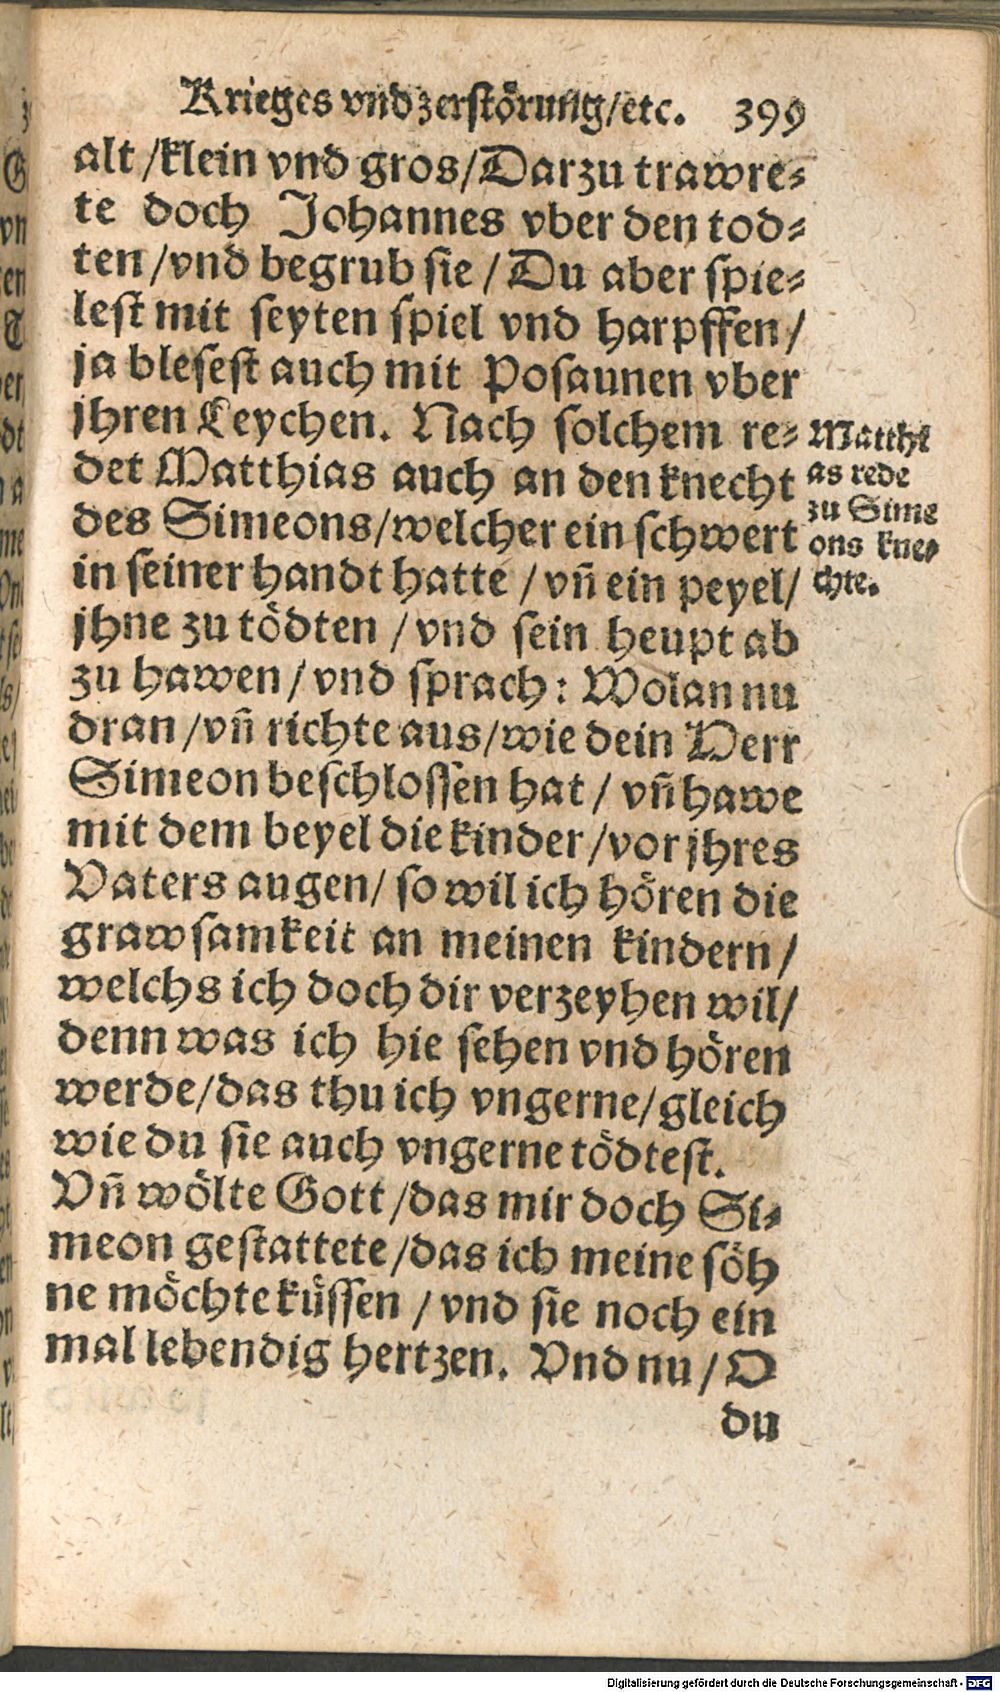 Krieges vnd zerstörung/etc. 399
alt /klein vnd gros/Darzu trawre-
te doch Johannes vber den tod-
ten /vnd begrub sie / Du aber spie-
lest mit seyten spiel vnd harpffen/
ja blesest auch mit Posaunen vber
jhren Leychen. Nach solchem re-
det Matthias auch an den knecht
des Simeons/welcher ein schwert
in seiner handt hatte / vñ ein peyel/
jhne zu tödten / vnd sein heupt ab
zu hawen / vnd sprach: Wolan nu
dran /vñ richte aus/wie dein Herr
Simeon beschlossen hat / vñ hawe
mit dem beyel die kinder /vor jhres
Vaters augen/ so wil ich hören die
grawsamkeit an meinen kindern/
welchs ich doch dir verzeyhen wil/
denn was ich hie sehen vnd hören
werde/das thu ich vngerne/gleich
wie du sie auch vngerne tödtest.
Vñ wölte Gott /das mir doch Si-
meon gestattete /das ich meine söh
ne möchte küssen / vnd sie noch ein
mal lebendig hertzen. Vnd nu / O
du
Matthi
as rede
zu Sime
ons kne-
chte.
Digitalisierung gefördert durch die Deutsche Forschungsgemeinschaft - DFG